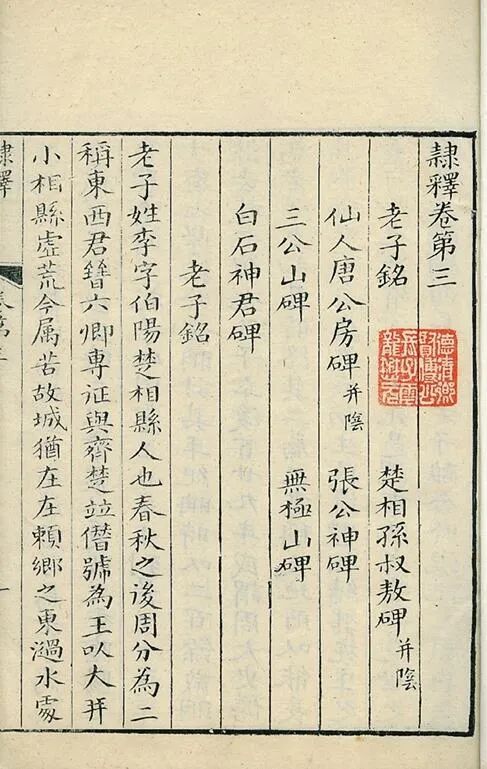 隸釋卷第三
老子銘　楚相孫叔敖碑并陰
仙人唐公房碑并陰　張公神碑
三公山碑　無極山碑
白石神君碑
老子銘
老子姓李字伯陽楚相縣人也春秋之後周分為二
稱東西君晉六卿專証與齊楚竝僭號為王以大并
小相縣虛荒今属苦故城猶在在頼鄉之東濄水處
隸釋　卷第三